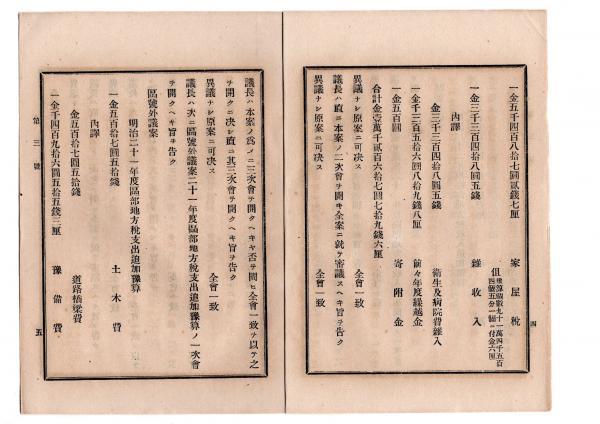 一金五千四百八拾七圓貳錢七厘　家屋稅
一金三千三百四拾八圓五錢　雜收入
內譯
金三千三百四拾八圓五錢　衛生及病院費雜入
一金千三百五拾六圓八拾九錢八厘　前々年度繰越金
一金五百圓　寄附金
合計金壹萬千貳百六拾七圓七拾九錢六厘
異議ナシ原案ニ可決ス　全會一致
議長ハ直ニ本案ノ二次會ヲ開キ全案ニ就テ審議スヘキ旨ヲ告ク
異議ナシ原案ニ可決ス　全會一致
四
議長ハ本案ノ爲メニ三次會ヲ開クヘキヤ否ヲ問ヒ全會一致ヲ以テ之
ヲ開クニ決シ直ニ其三次會ヲ開クヘキ旨ヲ告ク
異議ナシ原案ニ可決ス　全會一致
議長ハ次ニ區號外議案二十一年度區部地方稅支出追加豫算ノ一次會
ヲ開クヘキ旨ヲ告ク
區號外議案
明治二十一年度區部地方稅支出追加豫算
一金五百拾七圓五拾錢　土木費
內譯
金五百拾七圓五拾錢　道路橋梁費
一金千四百九拾六圓五拾五錢三厘　豫備費
第三號
五